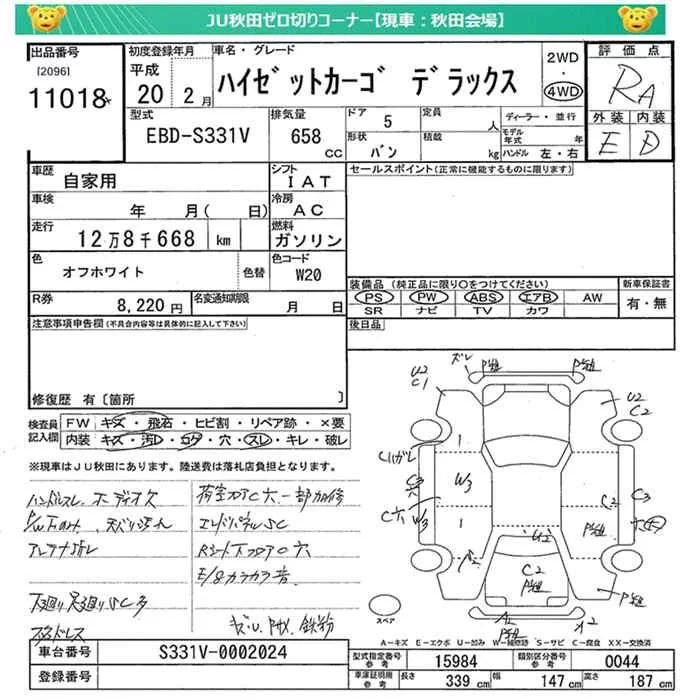 JU秋田ゼロ切りコーナー【現車：秋田会場】
出品番号
[2096]
11018
初度登録年月
平成
20年2月
車名・グレード
ハイゼットカーゴ デラックス
2WD
・
4WD
評価点
RA
外装 内装
E D
型式
EBD-S331V
排気量
658
CC
ドア 5
形状 バン
定員 人
積載 kg
ディーラー・並行
モデル年式 年
ハンドル 左・右
車歴
自家用
シフト
IAT
車検
年 月( 日)
冷房
AC
走行
12万8千668 km
燃料
ガソリン
色
オフホワイト
色替
色コード
W20
R券
8,220円
名変通知期限
月 日
セールスポイント(正常に機能するものに限ります)
装備品(純正品に限り○をつけてください)
PS PW ABS エアB AW
SR ナビ TV カワ
新車保証書
有・無
後日品
注意事項申告欄(不具合内容等は具体的に記入して下さい)
修復歴 有〔箇所 〕
検査員
記入欄
FW キズ・飛石・ヒビ割・リペア跡・×要
内装 キズ・汚レ・コゲ・穴・スレ・キレ・破レ
※現車はJU秋田にあります。陸送費は落札店負担となります。
ハンドルスレ
アンテナ折レ
下廻り足廻りSC多
荷室フロアC穴一部加修
エンドパネルSC
Rシート下フロアC穴
E/gカラカラ音
キズ・U
鉄粉
ズレ
P組
P組
U2
C1
U2
C2
W3
C穴
W3
C2
C3
U2
C2
P組
P組
A2
A2
スペア
A-キズ E-エクボ U-凹み W-補修跡 S-サビ C-腐食 XX-交換済
車台番号
S331V-0002024
登録番号
型式指定番号
参考
15984
類別区分番号
参考
0044
車庫証明用
参考
長さ 339 cm
幅 147 cm
高さ 187 cm